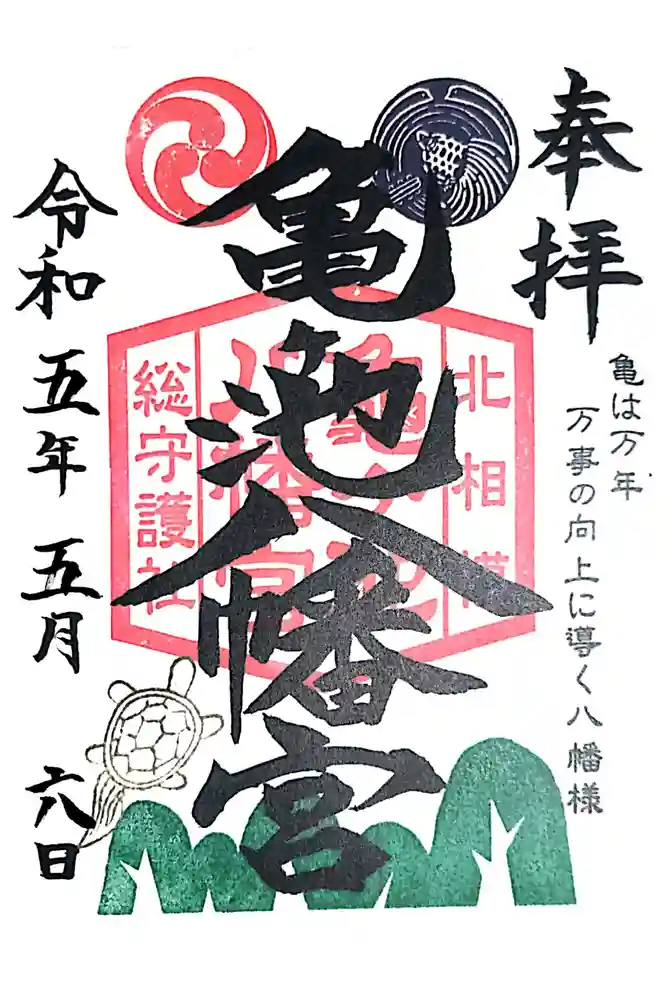 奉拝
亀は万年
万事の向上に導く八幡様
亀池八幡宮
北相模
亀ヶ池
八幡宮
総守護社
令和五年五月六日